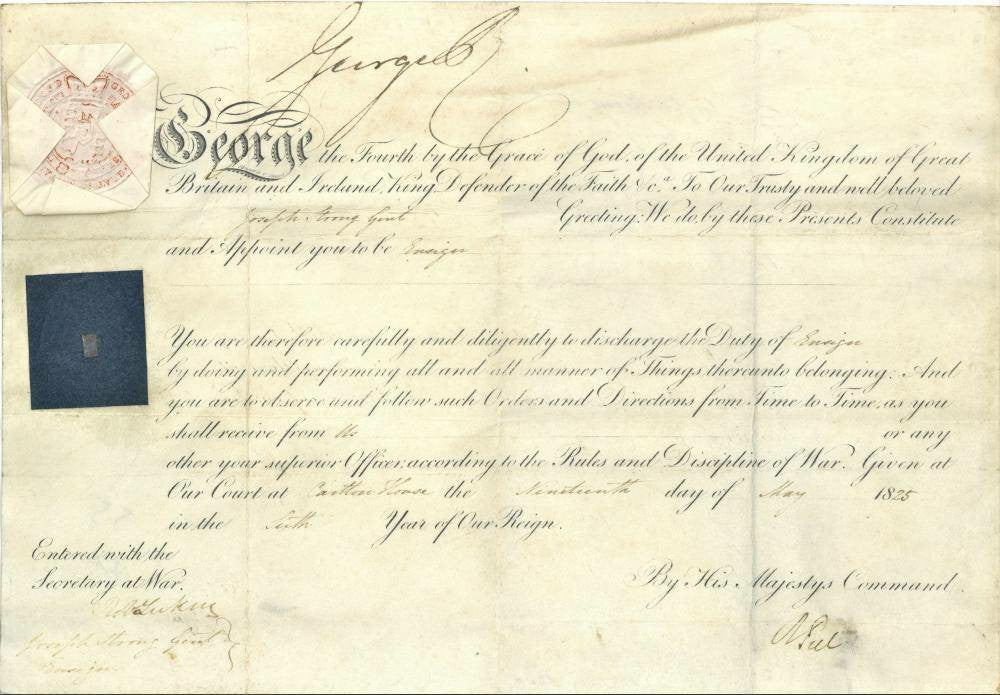 George R.
George the Fourth by the Grace of God, of the United Kingdom of Great
Britain and Ireland, King, Defender of the Faith &c.a To Our Trusty and well beloved
Joseph Strong Gent Greeting: We do, by these Presents Constitute
and Appoint you to be Ensign
You are therefore carefully and diligently to discharge the Duty of Ensign
by doing and performing all and all manner of Things thereunto belonging: And
you are to observe and follow such Orders and Directions from Time to Time, as you
shall receive from Us or any
other your superior Officer, according to the Rules and Discipline of War. Given at
Our Court at Carlton House the Nineteenth day of May 1825
in the Sixth Year of Our Reign.
Entered with the
Secretary at War.
By His Majestys Command
R Peel
Joseph Strong Gent
Ensign